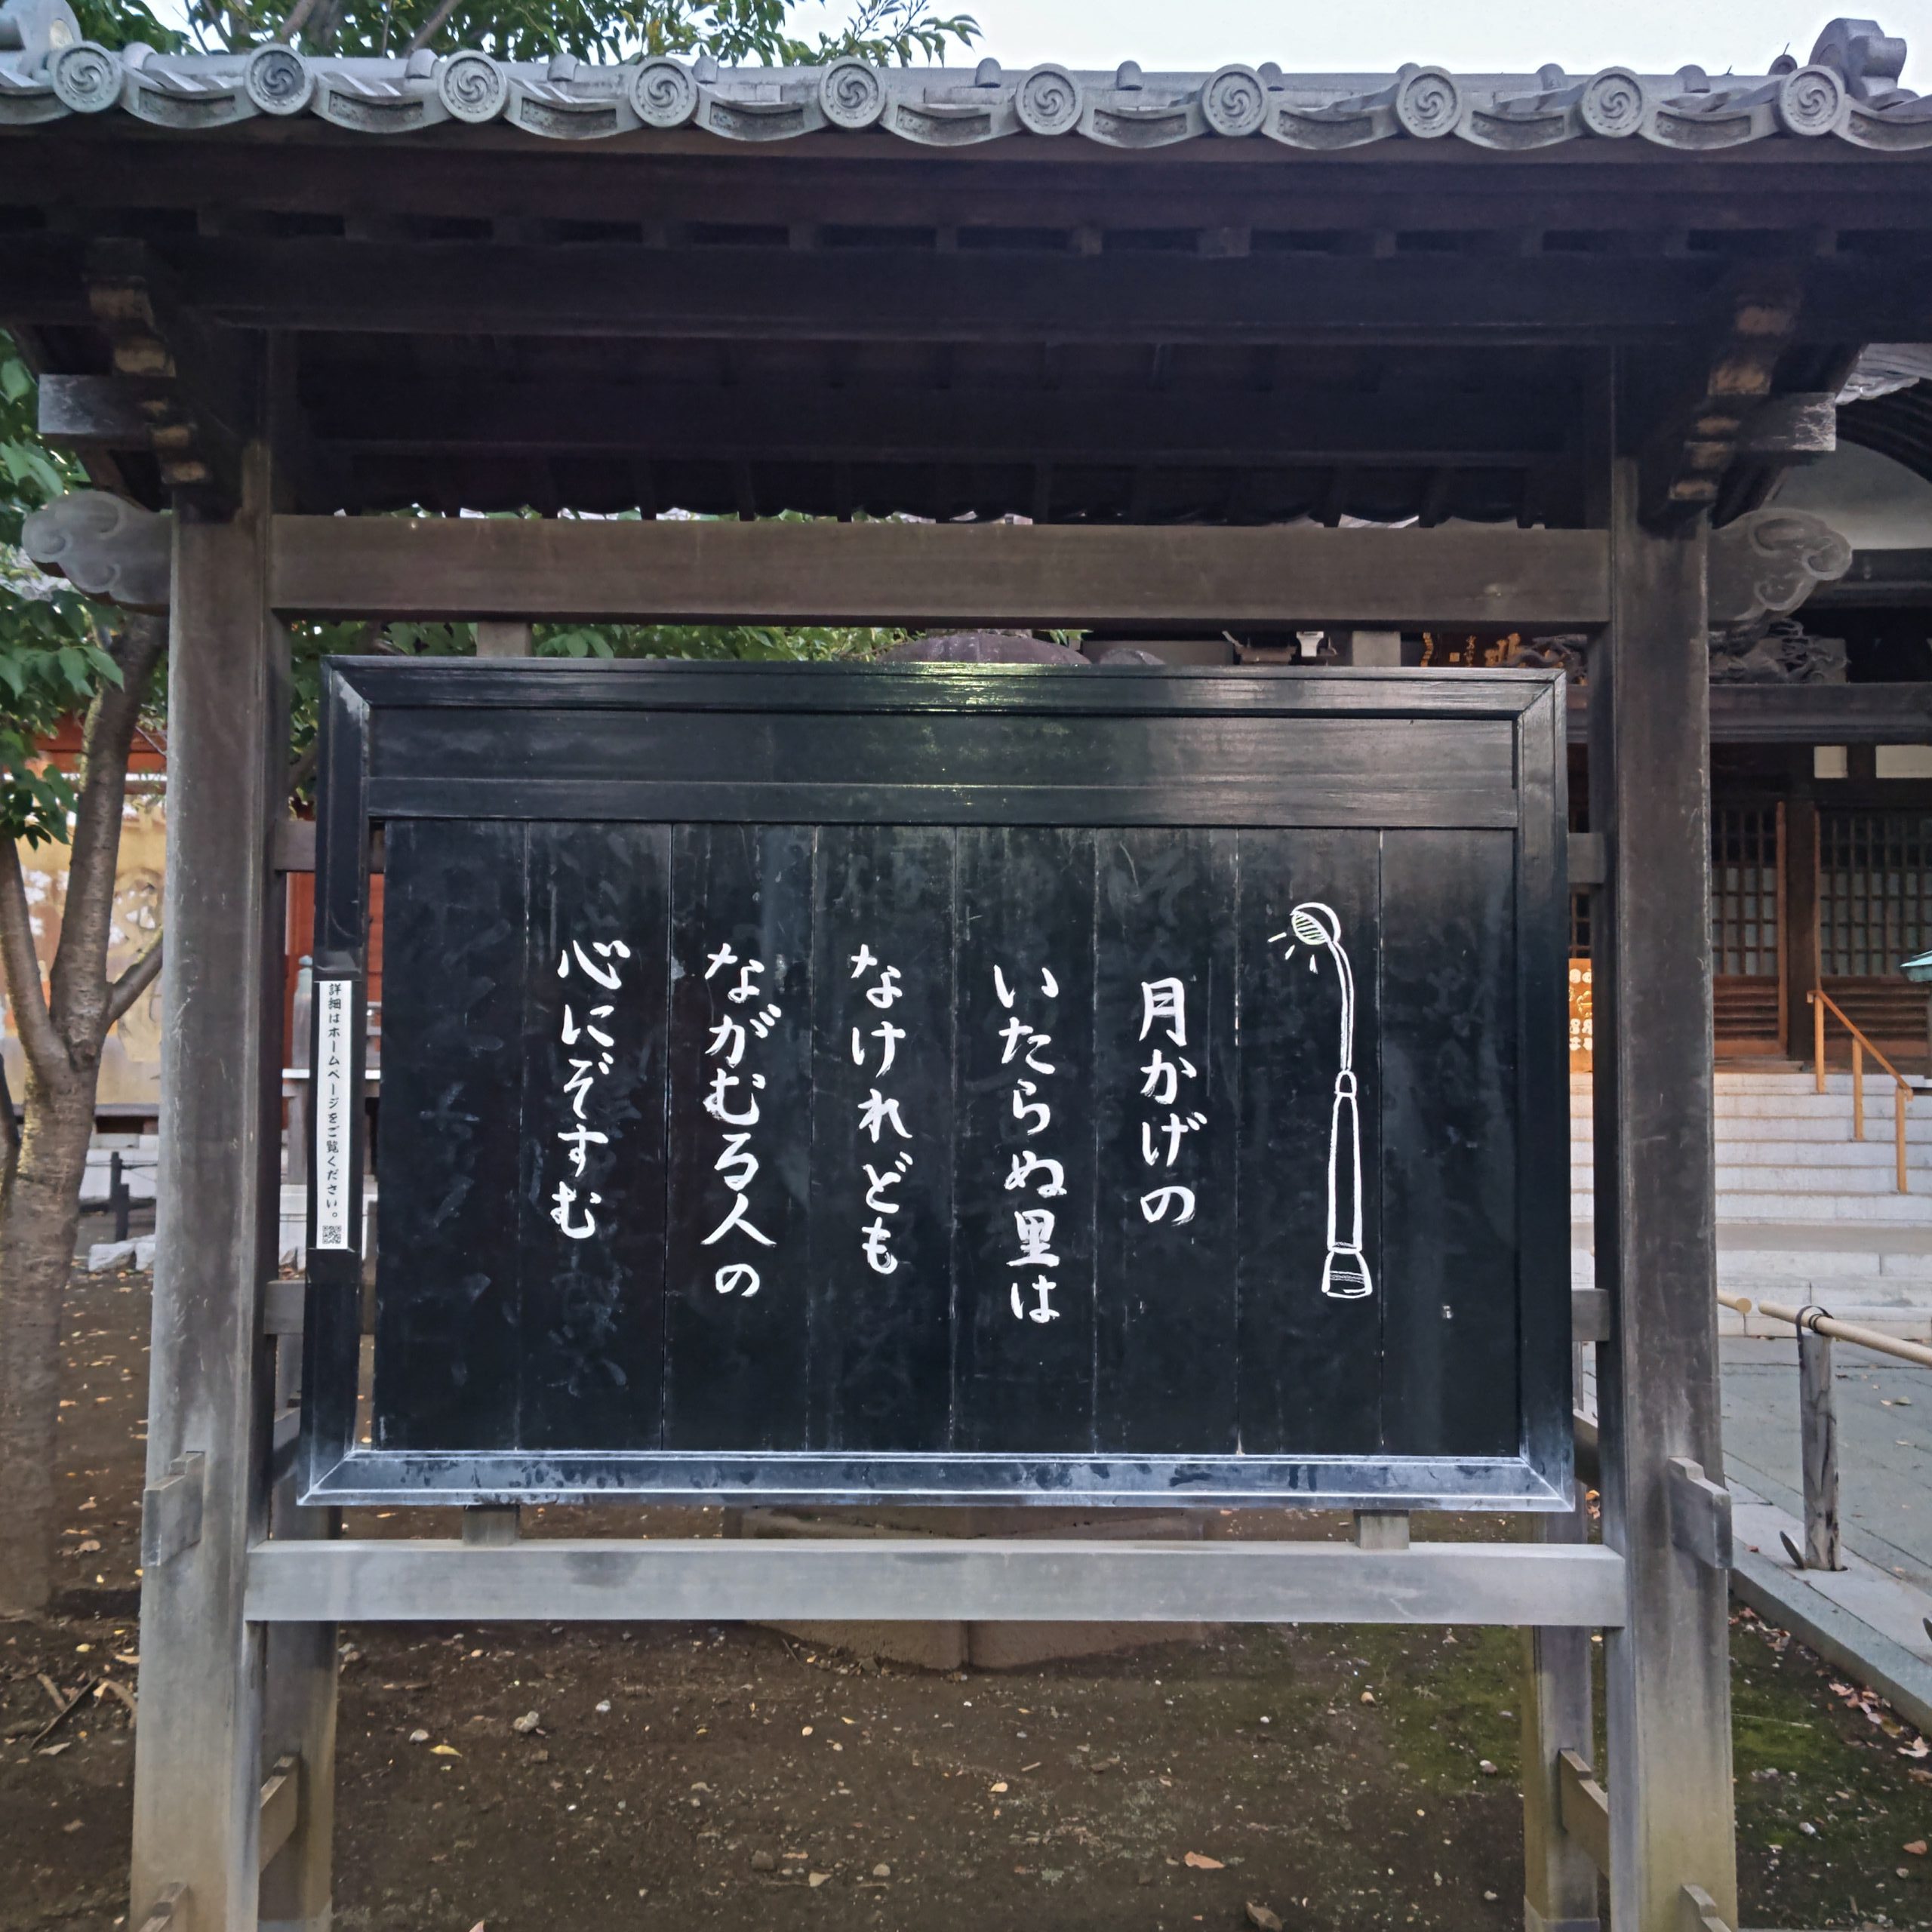 月かげの
いたらぬ里は
なけれども
ながむる人の
心にぞすむ
詳細はホームページをご覧ください。